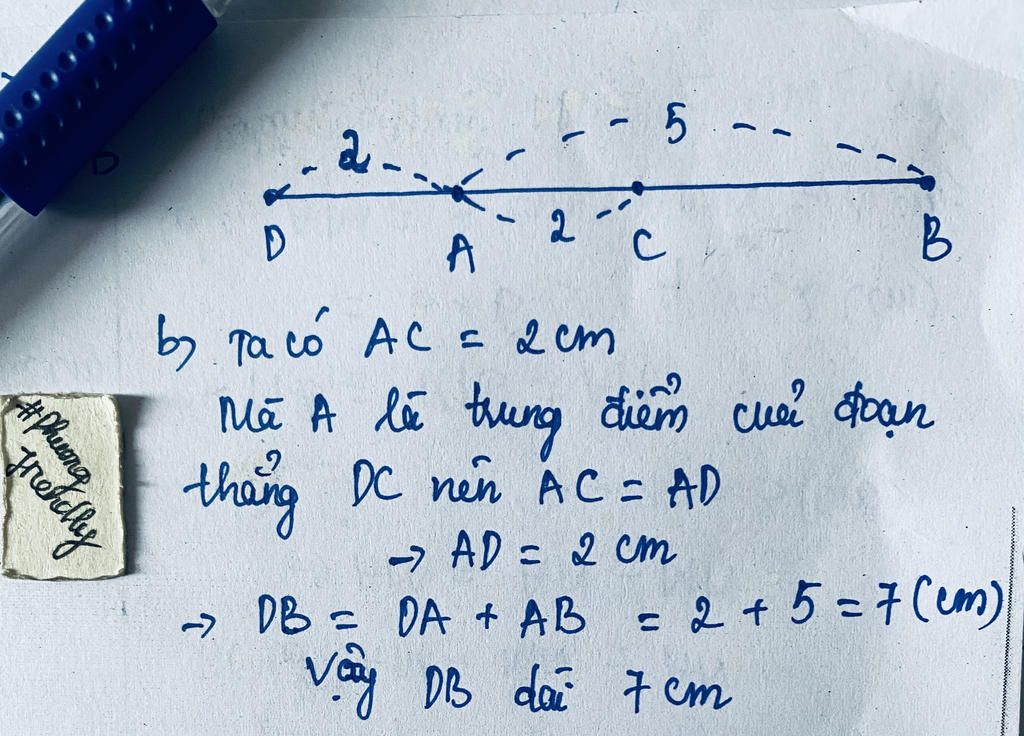 2 5
2
D A C B
b) Ta có AC = 2 cm
Mà A là trung điểm của đoạn
thẳng DC nên AC = AD
→ AD = 2 cm
→ DB = DA + AB = 2 + 5 = 7 (cm)
Vậy DB dài 7 cm
#phuong
friendly